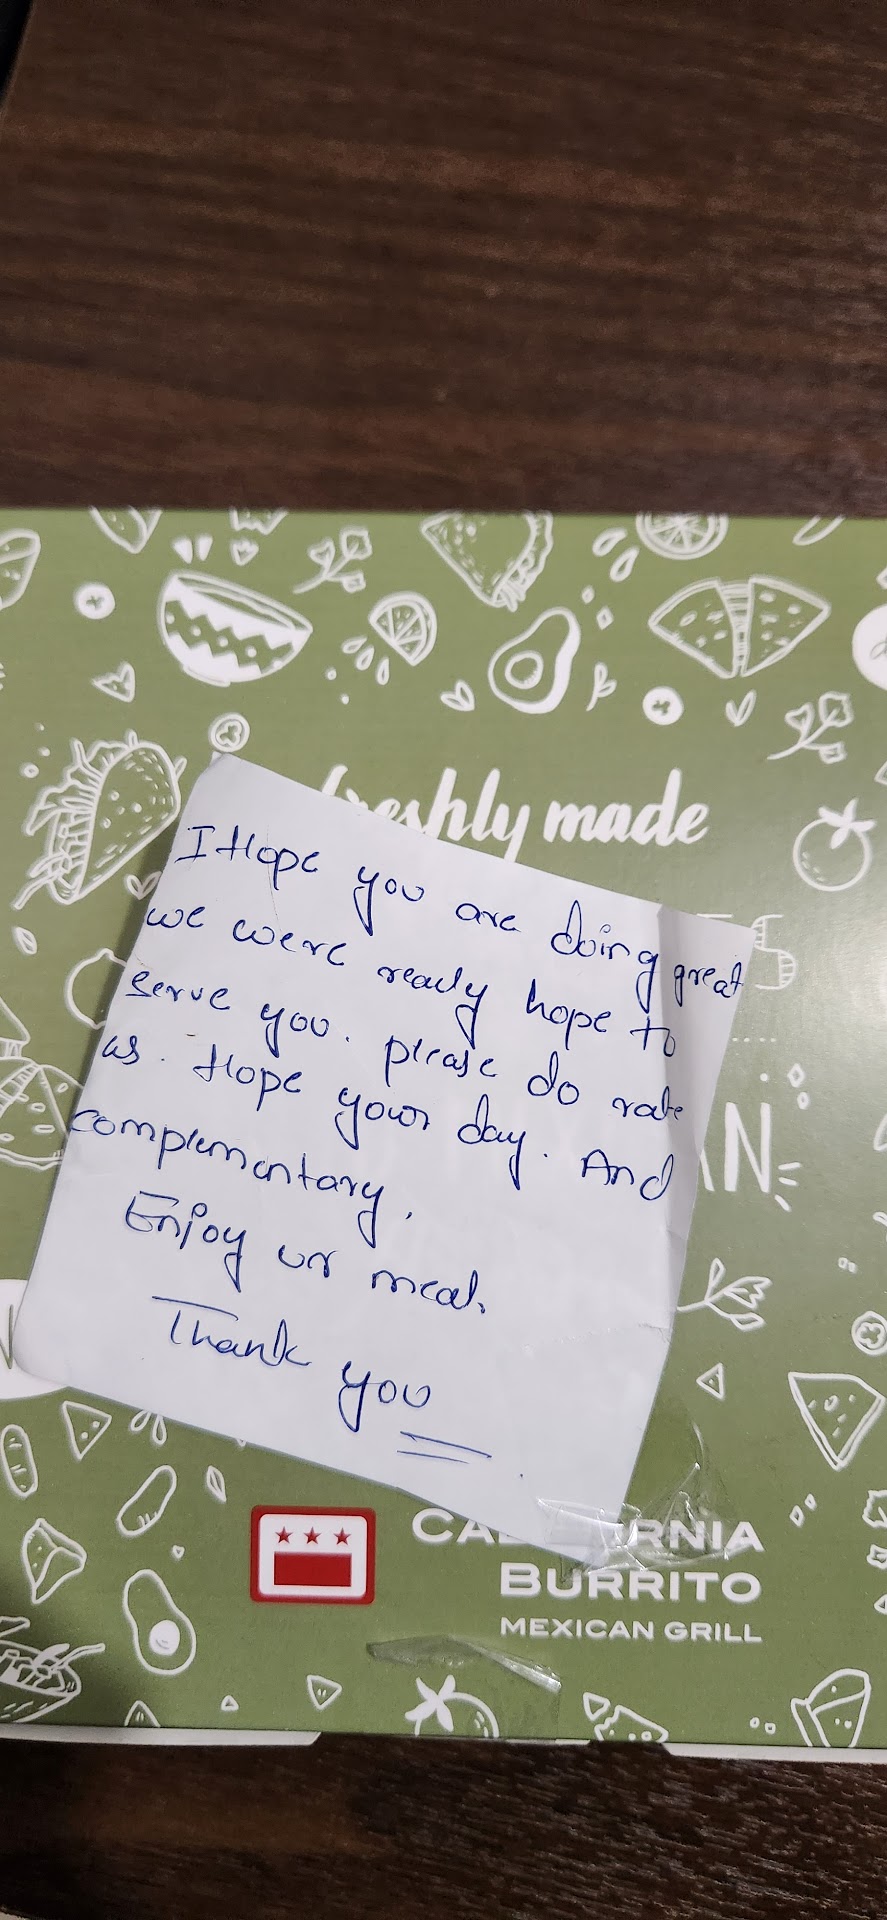 freshly made
I Hope you are doing great
we were ready hope to
serve you. please do rate
us. Hope your day. And
complementary,
Enjoy ur meal.
Thank you
CALIFORNIA
BURRITO
MEXICAN GRILL